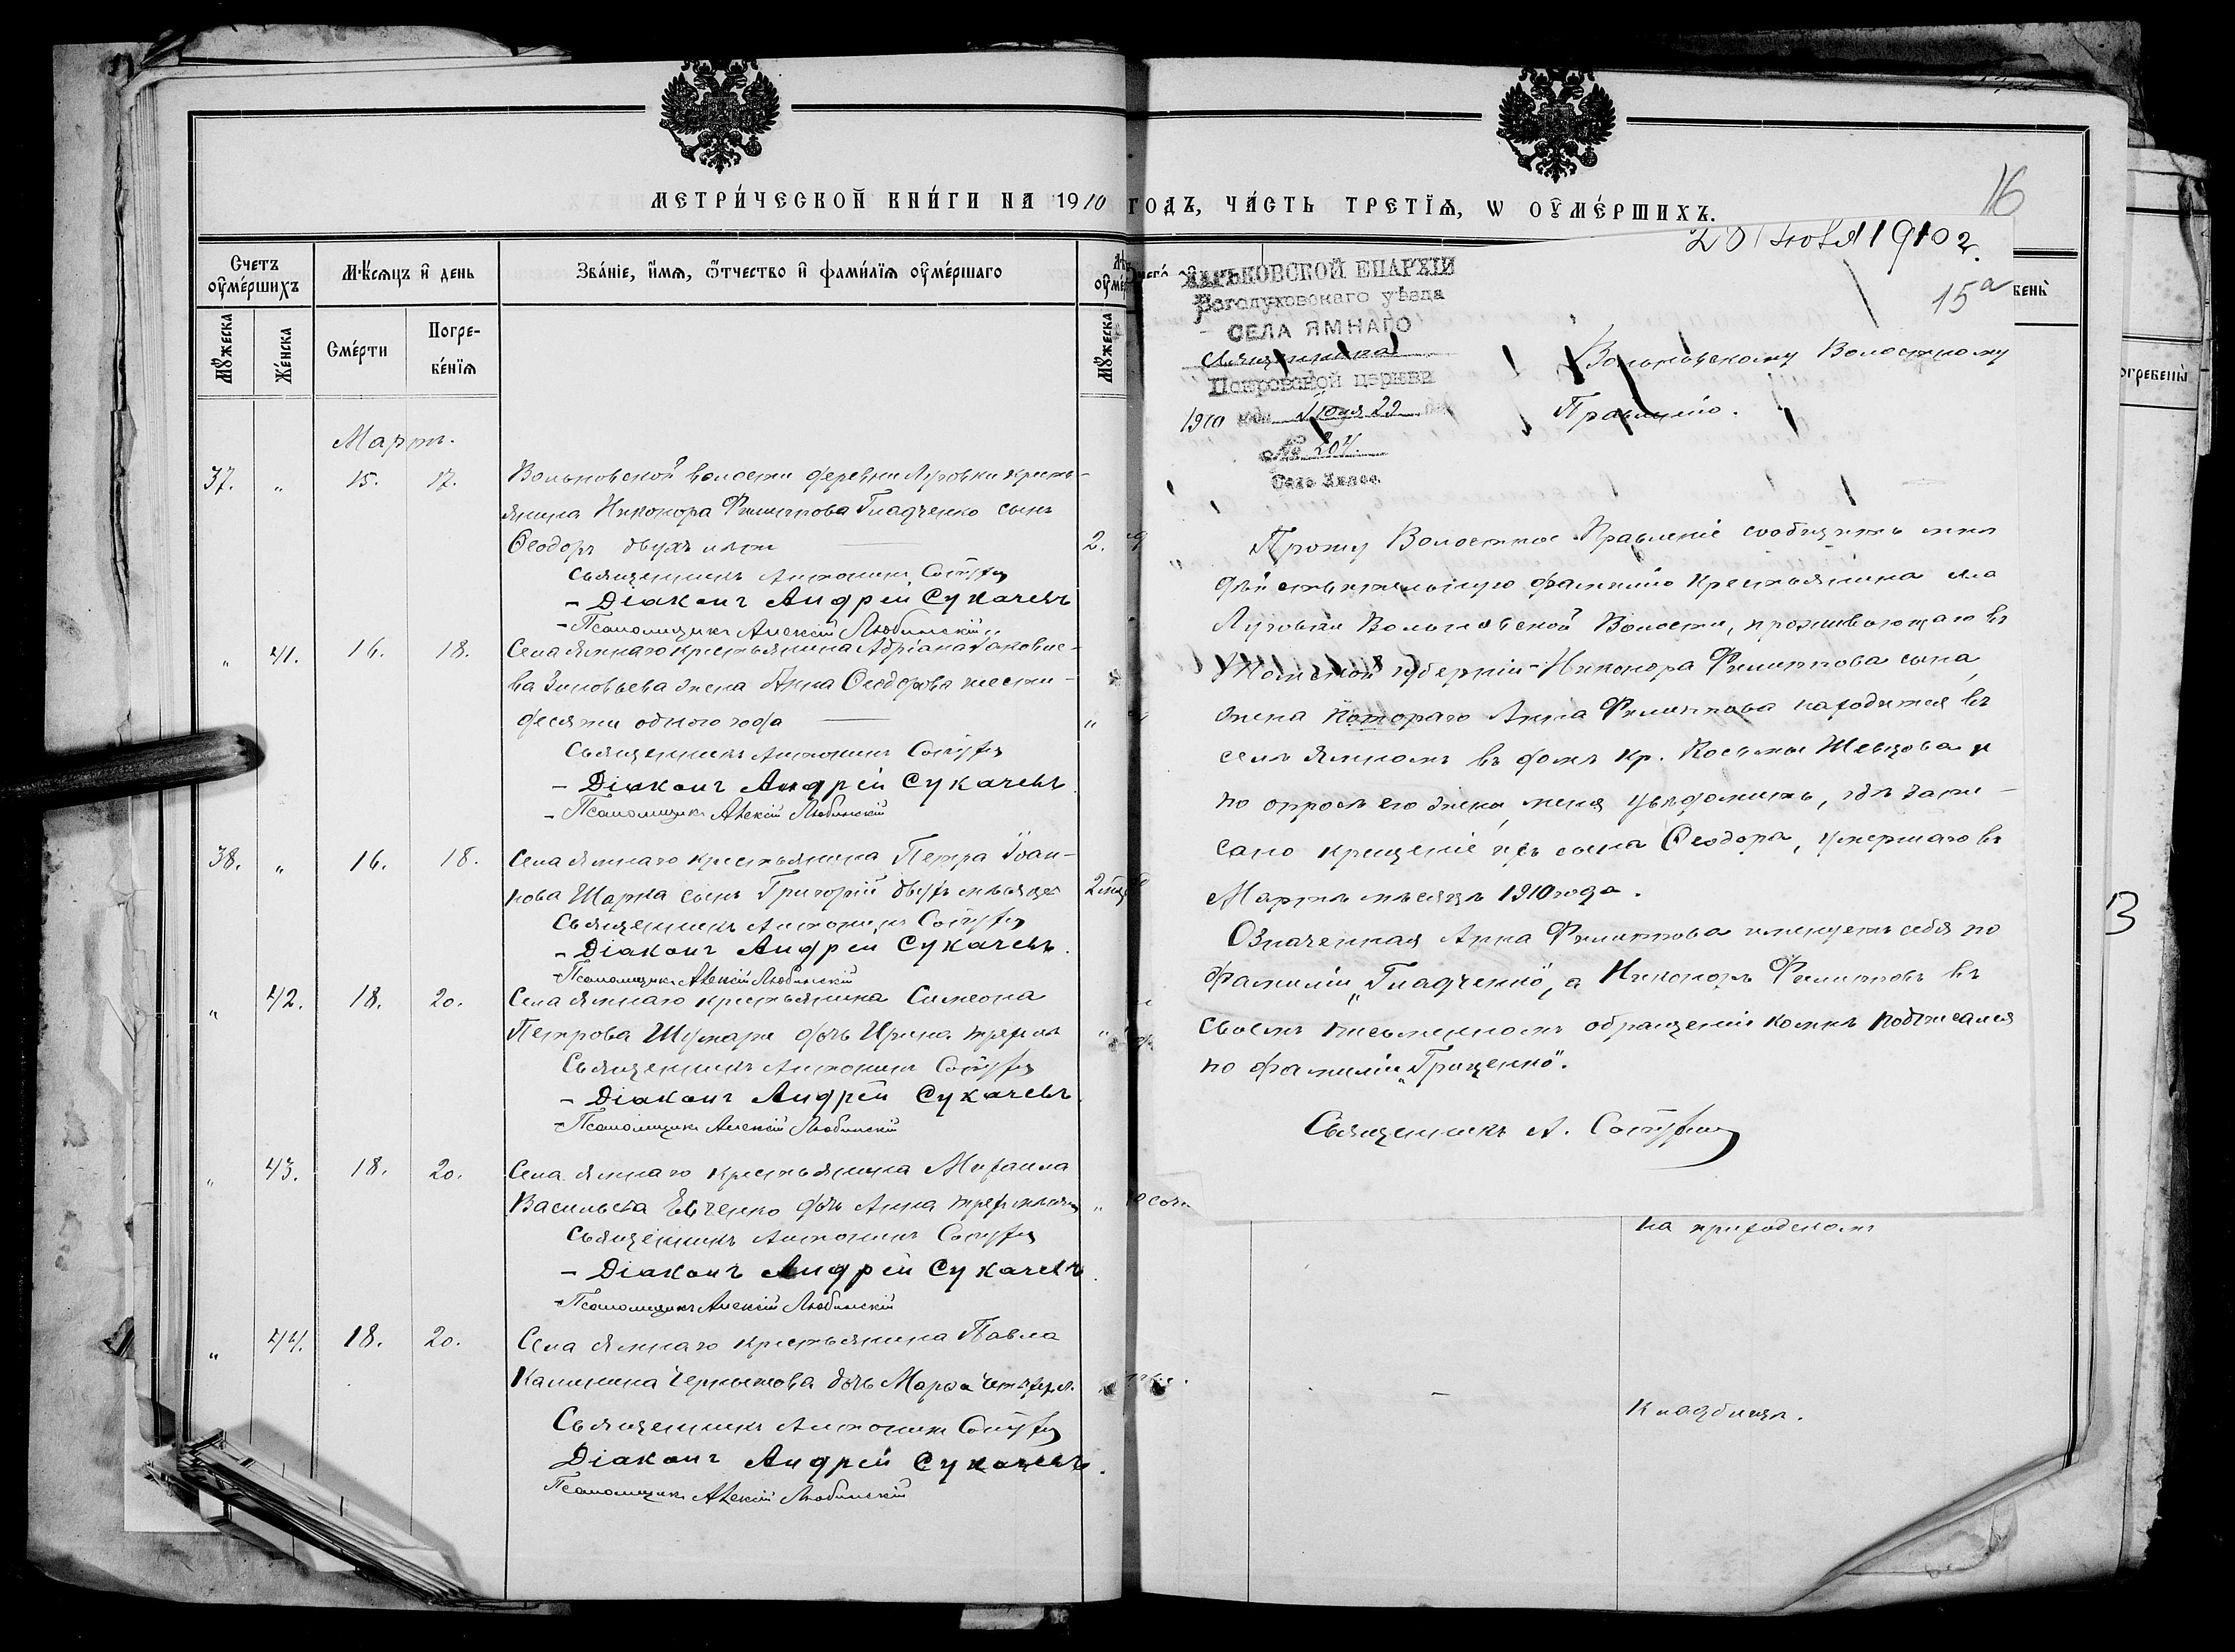 МЕТРИ́ЧЕСКОЙ КНИ́ГИ НА 1910 ГОДЪ, ЧА́СТЬ ТРЕТІѦ, Ѡ ОУ҆МЕ́РШИХЪ.
16
Счетъ оу҆ме́ршихъ
Мѣ́сяцъ и҆ день
Зва́ніе, и҆́мя, ѻ҆́тчество и҆ фами́лїя оу҆ме́ршаго
Му́жеска
Же́нска
Сме́рти
Погребе́нїя
Му́жеска
Мартъ.
37. „ 15. 17. Вольновской волости деревни Луговки кресть-
янина Никонора Филиппова Гладченко сынъ
Ѳеодоръ двухъ лѣтъ 2.
Священникъ Антонинъ
- Діаконъ Андрей Сукачевъ
- Псаломщикъ Алексій Любинскій
„ 41. 16. 18. Села Ямнаго крестьянина Адріана Іаковле-
ва Зиновьева жена Анна Ѳеодорова шести-
десяти одного года „
Священникъ Антонинъ
- Діаконъ Андрей Сукачевъ.
- Псаломщикъ Алексій Любинскій
38. „ 16. 18. Села Ямнаго крестьянина Петра Іоан-
нова Шарка сынъ Григорій двухъ мѣсяцев
Священникъ Антонинъ
- Діаконъ Андрей Сукачевъ.
- Псаломщикъ Алексій Любинскій
„ 42. 18. 20. Села Ямнаго крестьянина Симеона
Петрова дочь Ирина трехъ
Священникъ Антонинъ
- Діаконъ Андрей Сукачевъ.
- Псаломщикъ Алексій Любинскій
„ 43. 18. 20. Села Ямнаго крестьянина Михаила
Васильева Евченко дочь Анна трехъ „
Священникъ Антонинъ
- Діаконъ Андрей Сукачевъ.
- Псаломщикъ Алексій Любинскій
„ 44. 18. 20. Села Ямнаго крестьянина Павла
Калинина Чернышова дочь Марѳа
Священникъ Антонинъ
Діаконъ Андрей Сукачевъ.
Псаломщикъ Алексій Любинскій
1910 г.
15а
ХАРЬКОВСКОЙ ЕПАРХІИ
Богодуховскаго уѣзда
СЕЛА ЯМНАГО
Священника
Покровской церкви
1910 года Іюня 22 дня
№ 204.
Село Ямное.
Вольновскому Волостному
Правленію.
Прошу Волостное Правленіе сообщить мнѣ
дѣйствительную фамилію крестьянина
Луговки Вольновской Волости, проживающаго въ
Томской губерніи Никонора Филиппова сына,
жена котораго Анна Филиппова находится въ
селѣ Ямномъ въ домѣ кр. Косьмы Шевцова и
по опросѣ его жены, меня увѣдомить, гдѣ запи-
сано крещеніе ихъ сына Ѳеодора, умершаго въ
Мартѣ мѣсяцѣ 1910 года.
Означенная Анна Филиппова именуетъ себя по
фамиліи „Гладченко", а Никоноръ Филипповъ въ
своемъ письменномъ обращеніи ко мнѣ подписался
по фамиліи „Грищенко".
Священникъ А.
огребены
на приходскомъ
кладбищѣ.